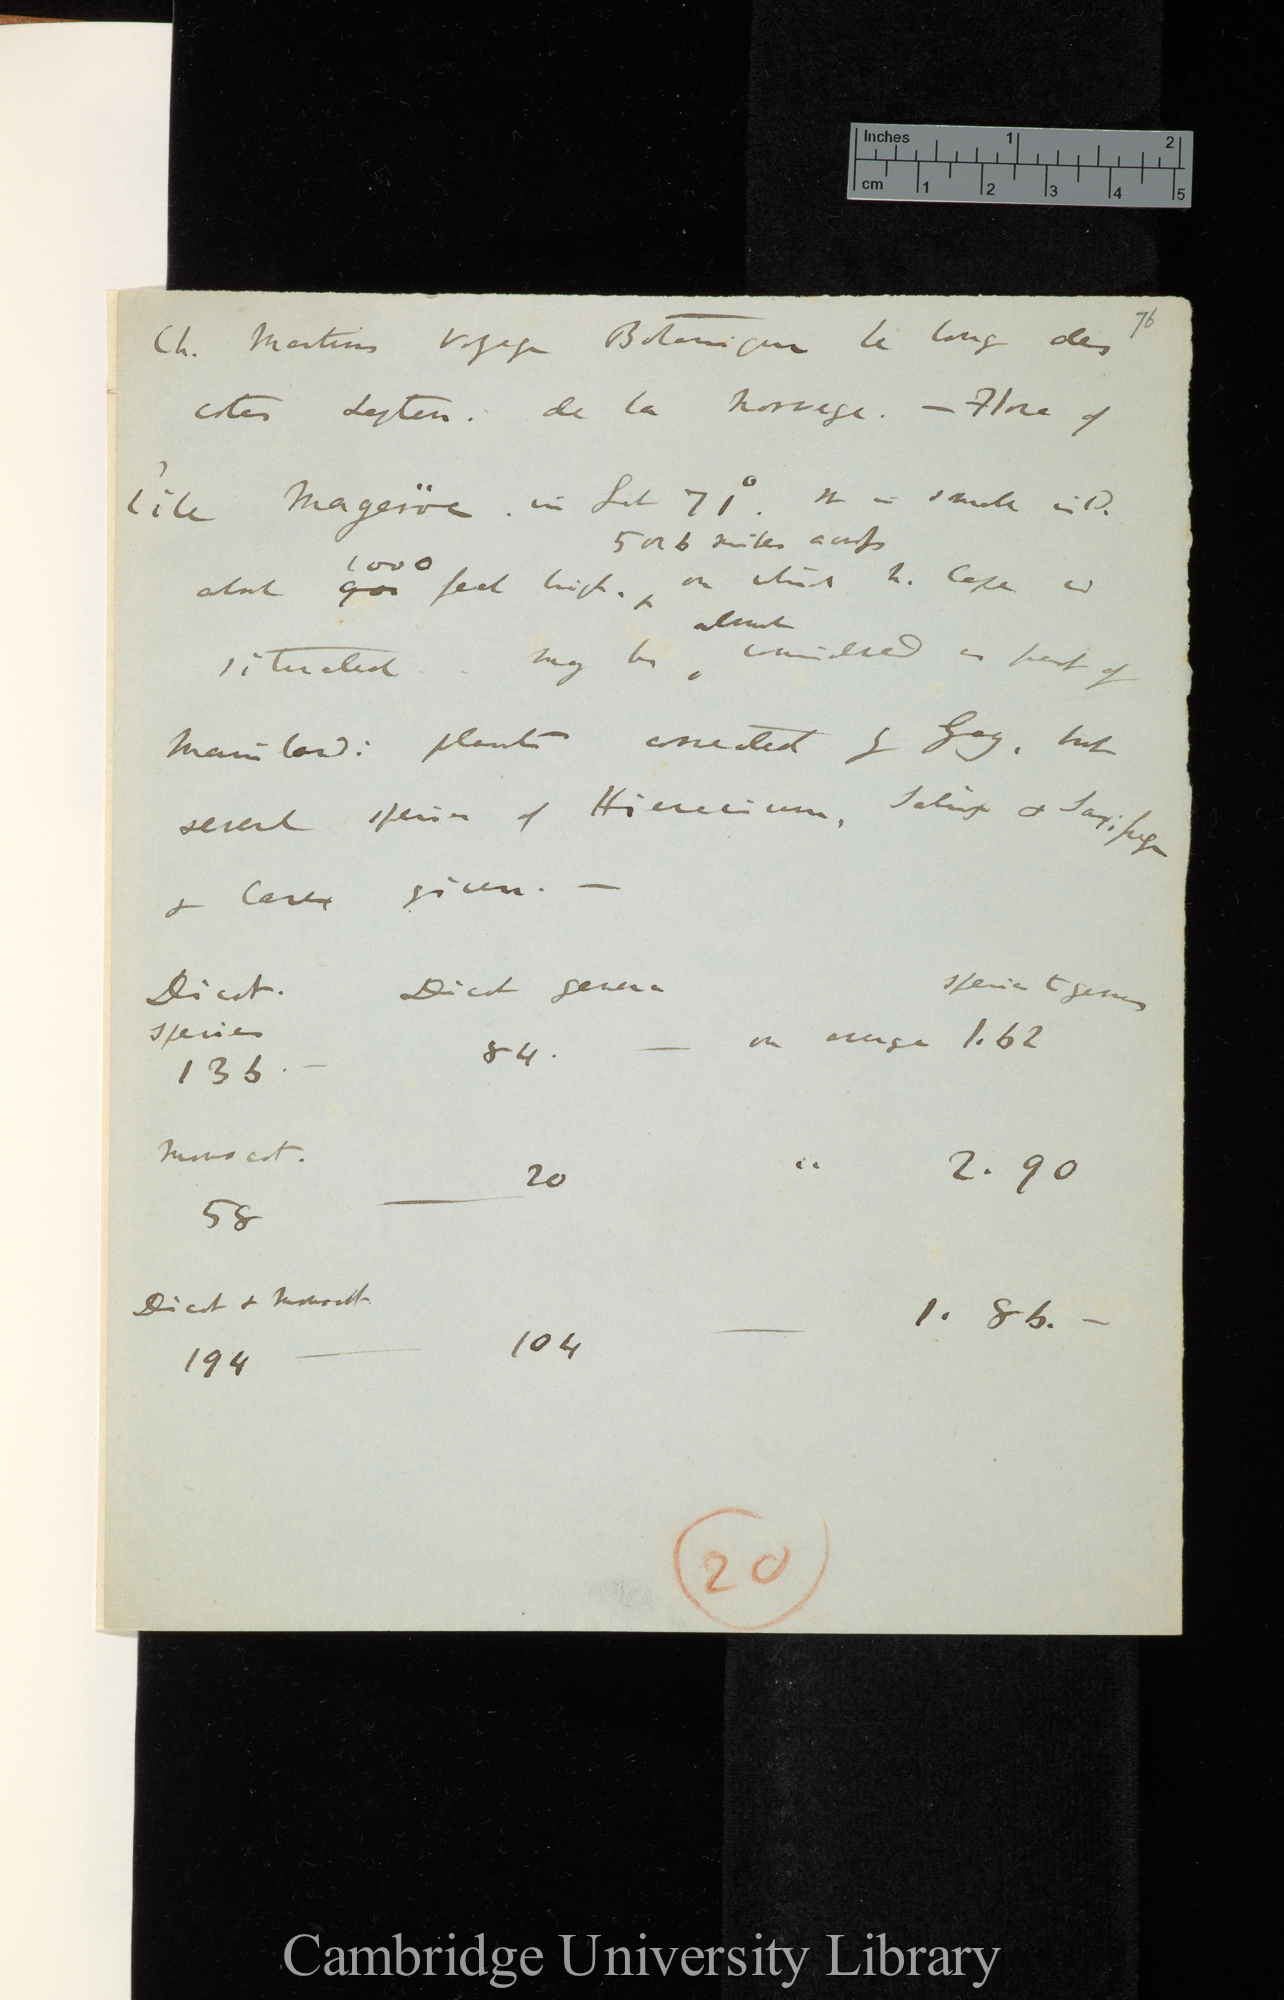 Inches 1 2
cm 1 2 3 4 5
76
Ch. Martins Voyage Botanique le long des
cotes Septen. de la Norvege. — Flora of
l'ile Mageröe . in Lat 71°. is small isld.
5 or 6 miles across
1000
about 900 feet high. on which N. Cape is
almost
situated may be considered as part of
Main land: plants corrected by Gay, but
several species of Hieracium, Salix & Saxifraga
& Carex given. —
Dicot. Dicot genera species to genus
species
136. — 84. — on average 1.62
Monocot.
58 — 20 " 2.90
Dicot & Monocot.
194 — 104 — 1.86. —
20
Cambridge University Library